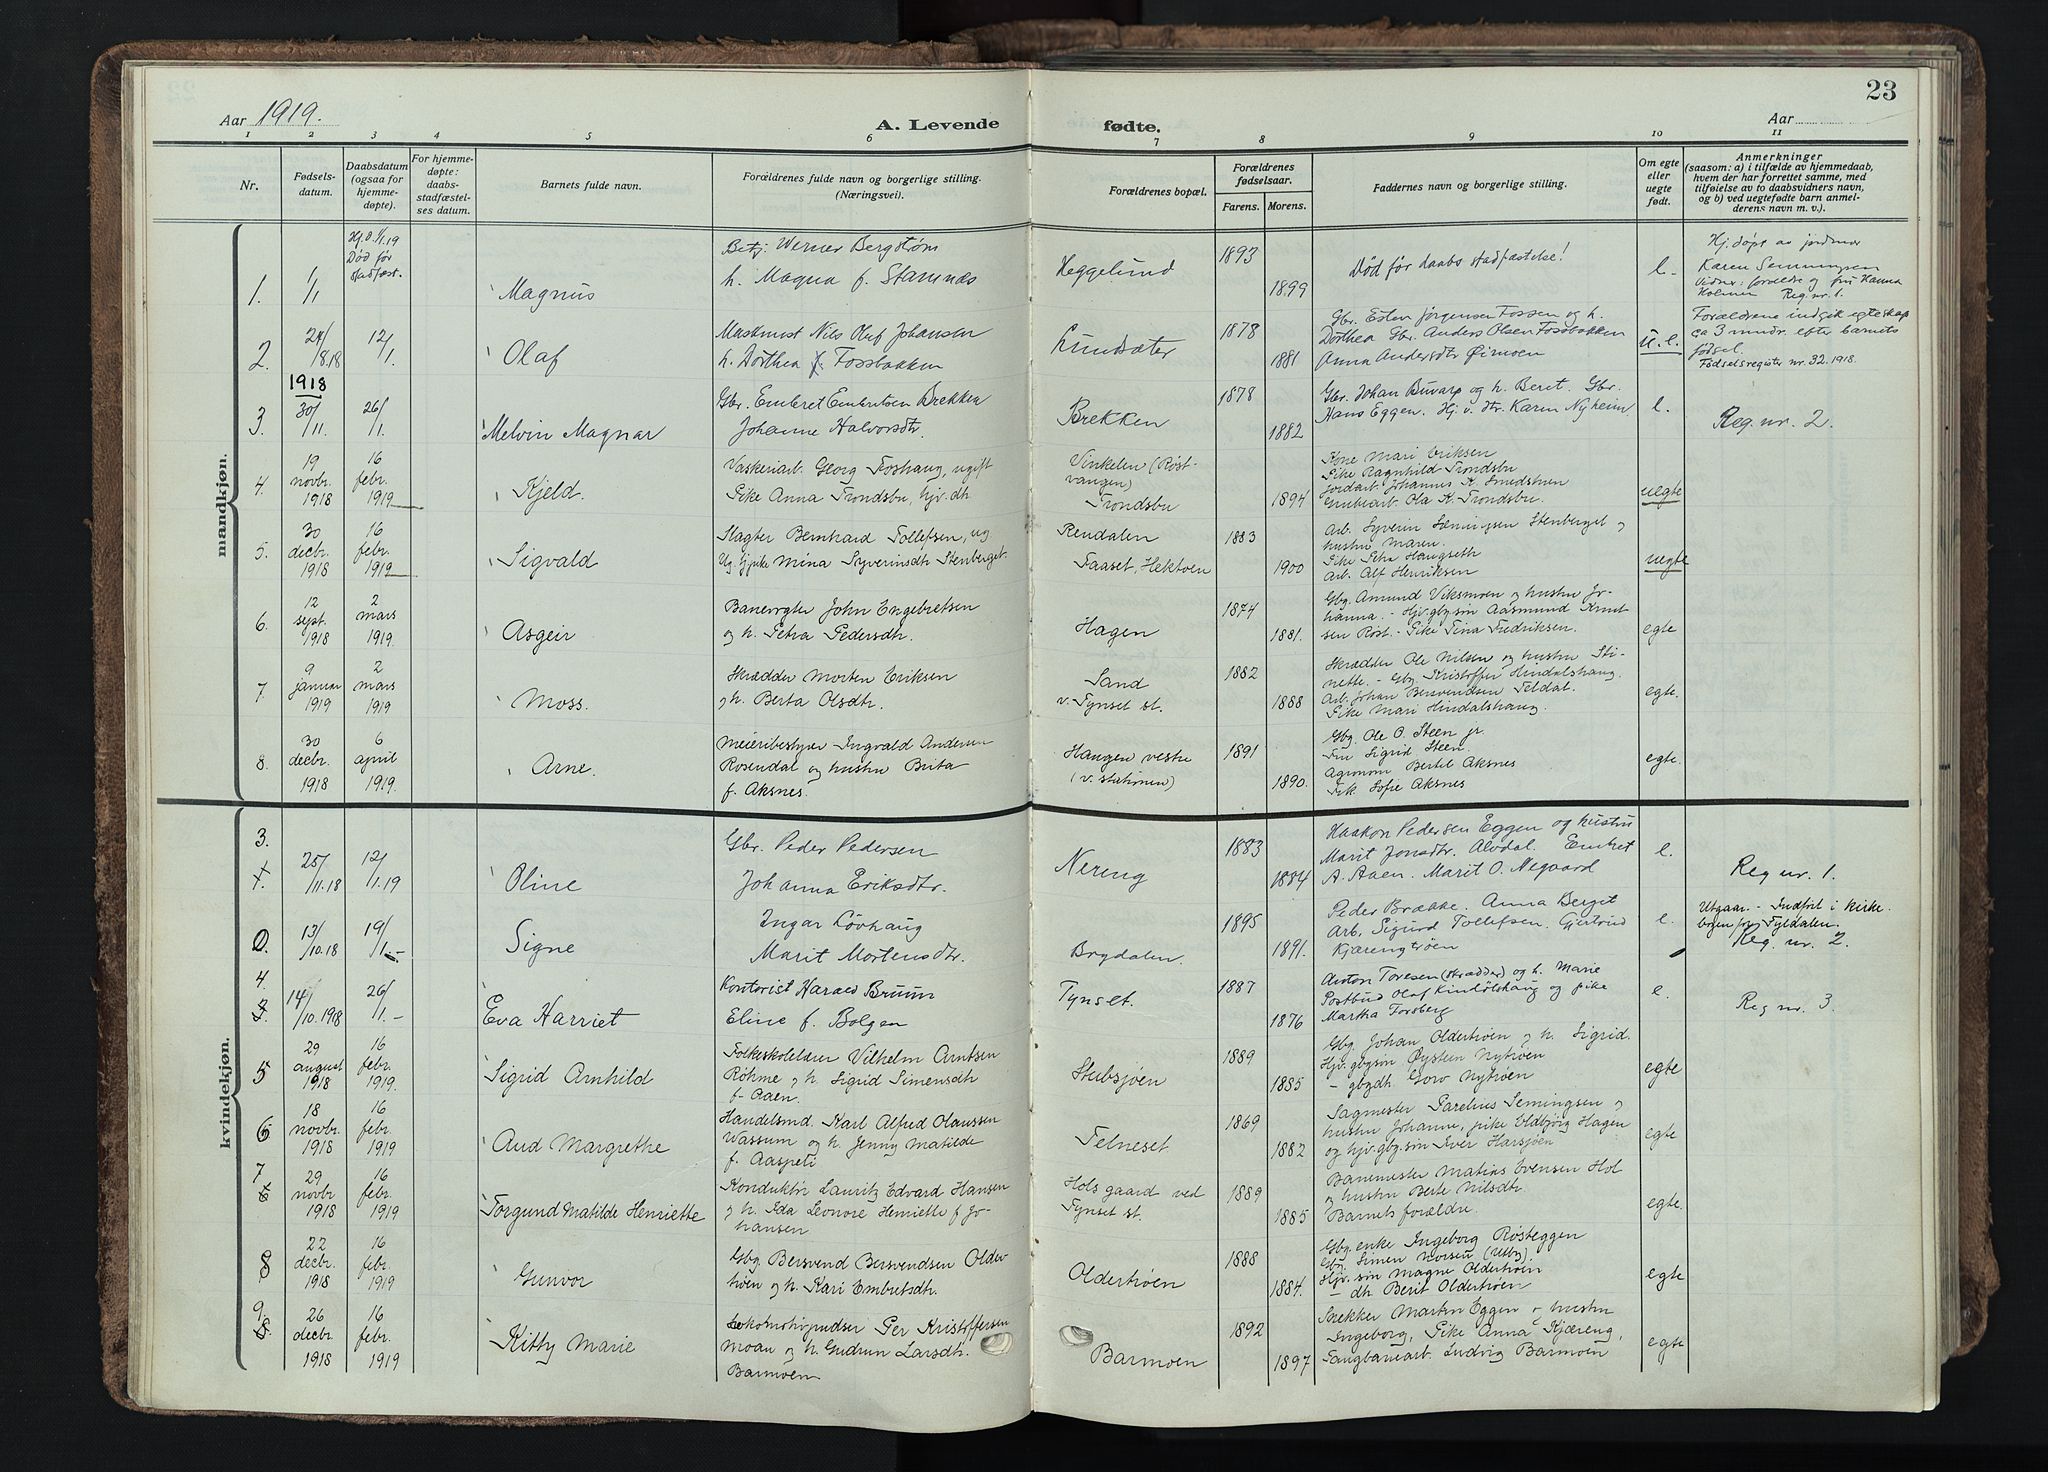 23
Aar 1919.
A. Levende fødte.
Aar
1 2 3 4 5 6 7 8 9 10 11
Nr.
Fødselsdatum.
Daabsdatum (ogsaa for hjemmedøpte).
For hjemmedøpte: daabsstadfæstelses datum.
Barnets fulde navn.
Forældrenes fulde navn og borgerlige stilling. (Næringsvei).
Forældrenes bopæl.
Forældrenes fødselsaar.
Farens. Morens.
Faddernes navn og borgerlige stilling.
Om egte eller uegte født.
Anmerkninger (saasom: a) i tilfælde av hjemmedaab, hvem der har forrettet samme, med tilføielse av to daabsvidners navn, og b) ved uegtefødte barn anmelderens navn m. v.).
mandkjøn.
1. 1/1
Hj. d. 1/1.19
Død før stadfæst.
Magnus
Betj: Werner Bergstrøm
h. Magna f. Stamnæs
Heggelund
1893
1899
Død før daabs stadfæstelse!
e.
Hj. døpt av jordmor
Karen Semmingsen
Vidner: forældre og fru Hanna
Holmen Reg. nr. 1.
2. 24/8.18
12/1.
Olaf
Maskinist Nils Olaf Johansen
h. Dorthea f. Fossbakken
Lundsæter
1878
1881
Gbr. Esten Jørgensen Fossen og h.
Dorthea Gbr. Anders Olsen Fossbakken
Anna Andersdtr Øimoen
u.e.
Forældrene indgik egteskap
ca 3 mndr. efter barnets
fødsel.
Fødselsregister nr. 32. 1918.
1918
3. 30/11.
26/1.
Melvin Magnar
Gbr. Embret Embretsen Brekken
Johanne Halvorsdtr.
Brekken
1878
1882
Gbr. Johan Buvarp og h. Beret. Gbr.
Hans Eggen. Hj. v. dtr. Karin Nyheim
e.
Reg. nr. 2.
4. 19 novbr. 1918
16 febr. 1919
Kjeld.
Vaskeriarb. Georg Foshaug, ugift
Pike Anna Trondsbu, hjv. dt.
Vinkelen (Røstvangen)
Trondsbu
1894
Kone Mari Eriksen
Pike Ragnhild Trondsbu
Jordarb. Johannes K. Smedstuen
Grubearb. Ola K. Trondsbu.
uegte
5. 30 decbr. 1918
16 febr. 1919
Sigvald
Slagter Bernhard Tollefsen, ug
Ug. Gj.pike Mina Syverinsdtr Stenberget.
Rendalen
Faaset, Hektoen
1883
1900
Arb. Syverin Sæmingsen Stenberget og
hustru Maren.
Pike Petra Haugseth
Arb. Alf Henriksen
uegte
6. 12 sept. 1918
2 mars 1919.
Asgeir
Banevogter John Engebretsen
og h. Petra Pedersdtr.
Hagen
1874
1881.
Gbg. Amund Viksmoen og hustru Johanna.
- Hjv. gbg.søn Aasmund Knutsen
Røst. - Pike Tina Fredriksen.
egte
7. 9 januar 1919
2 mars 1919
Moss.
Skrædder Morten Eriksen
og h. Berta Olsdtr.
Sand
v. Tynset st.
1882
1888
Skrædder Ole Nilsen og hustru Stinette.
- Gbg. Kristoffer Hindalshaug.
Arb. Johan Bersvendsen Teldal.
Pike Mari Hindalshaug.
egte.
8. 30 decbr. 1918
6 april 1919.
Arne.
Meieribestyrer Ingvald Andersen
Rosendal og hustru Brita
f. Aksnes.
Haugen vestre
(v. stationen)
1891
1890.
Gbg. Ole O. Steen jr.
Fru Sigrid Steen.
Agronom Bertel Aksnes
Frk. Sofie Aksnes
egte.
kvindekjøn.
3.
25/11.18
12/1.19
Oline
Gbr. Peder Pedersen
Johanna Eriksdtr.
Nereng
1883
1884
Haakon Pedersen Eggen og hustru
Marit Jonsdtr. Alvdal. Embret
A. Aaen. Marit O. Negaard
e.
Reg nr. 1.
0. 13/10.18
19/1.-
Signe
Ingar Løvhaug
Marit Mortensdtr.
Brydalen.
1895
1891.
Peder Brække. Anna Bergit
Arb. Sigurd Tollefsen. Gjertrud
Kjærengtrøen
e.
Utgaar. - Indført i kirkebogen for Tyldalen.
Reg. nr. 2.
4. 14/10.1918
26/1.-
Eva Harriet
Kontorist Harald Bruun
Eline f. Bolgen
Tynset.
1887
1876
Anton Toresen (skrædder) og h. Marie
Postbud Olaf Kindølshaug og pike
Martha Forsberg
e.
Reg nr. 3.
5 29 august 1918
16 febr. 1919.
Sigrid Arnhild
Folkeskolelærer Vilhelm Arntsen
Röhme og h. Sigrid Simensdtr
f. Aaen.
Stubsjøen
1889
1885
Gbg. Johan Oldertrøen og h. Sigrid.
Hjv. gbgsøn Øystein Nytrøen
- gbgdt. Goro Nytrøen
egte
6 18 novbr. 1918
16 febr. 1919
Aud Margrethe
Handelsmd. Karl Alfred Olaussen
Wassum og h. Jenny Matilde
f. Aaspeti
Telneset
1869
1882
Sagmester Parelius Semingsen og
hustru Johanne, pike Oldbjørg Hagen
og hjv. gbg.søn Iver Harsjøen
egte
7 29 novbr 1918
16 febr. 1919
Torgund Matilde Henriette
Konduktør Lauritz Edvard Hansen
og h. Ida Leonore Henriette f. Johansen
Hols gaard ved
Tynset st.
1889
1885
Banemester Matias Evensen Hol
og hustru Berte Nilsdtr
Barnets forældre.
egte.
8 22 decbr. 1918
16 febr. 1919
Gunvor
Gbg. Bersvend Bersvendsen Oldertrøen
og h. Kari Embretsdtr.
Oldertrøen
1888
1884.
Gbg.enke Ingeborg Røsteggen
Gbg. Simen Morsen (Utby).
Hjv. søn Magne Oldertrøen
- dt. Berit Oldertrøen
egte
9. 26 decbr. 1918
16 febr. 1919
Kitty Marie
Lokomotivpudser Per Kristoffersen
Moan og h. Gudrun Larsdtr.
Barmoen
Barmoen
1892
1897
Snekker Martin Eggen og hustru
Ingeborg, Pike Anna Kjæreng,
Sangbanearb. Ludvig Barmoen
egte